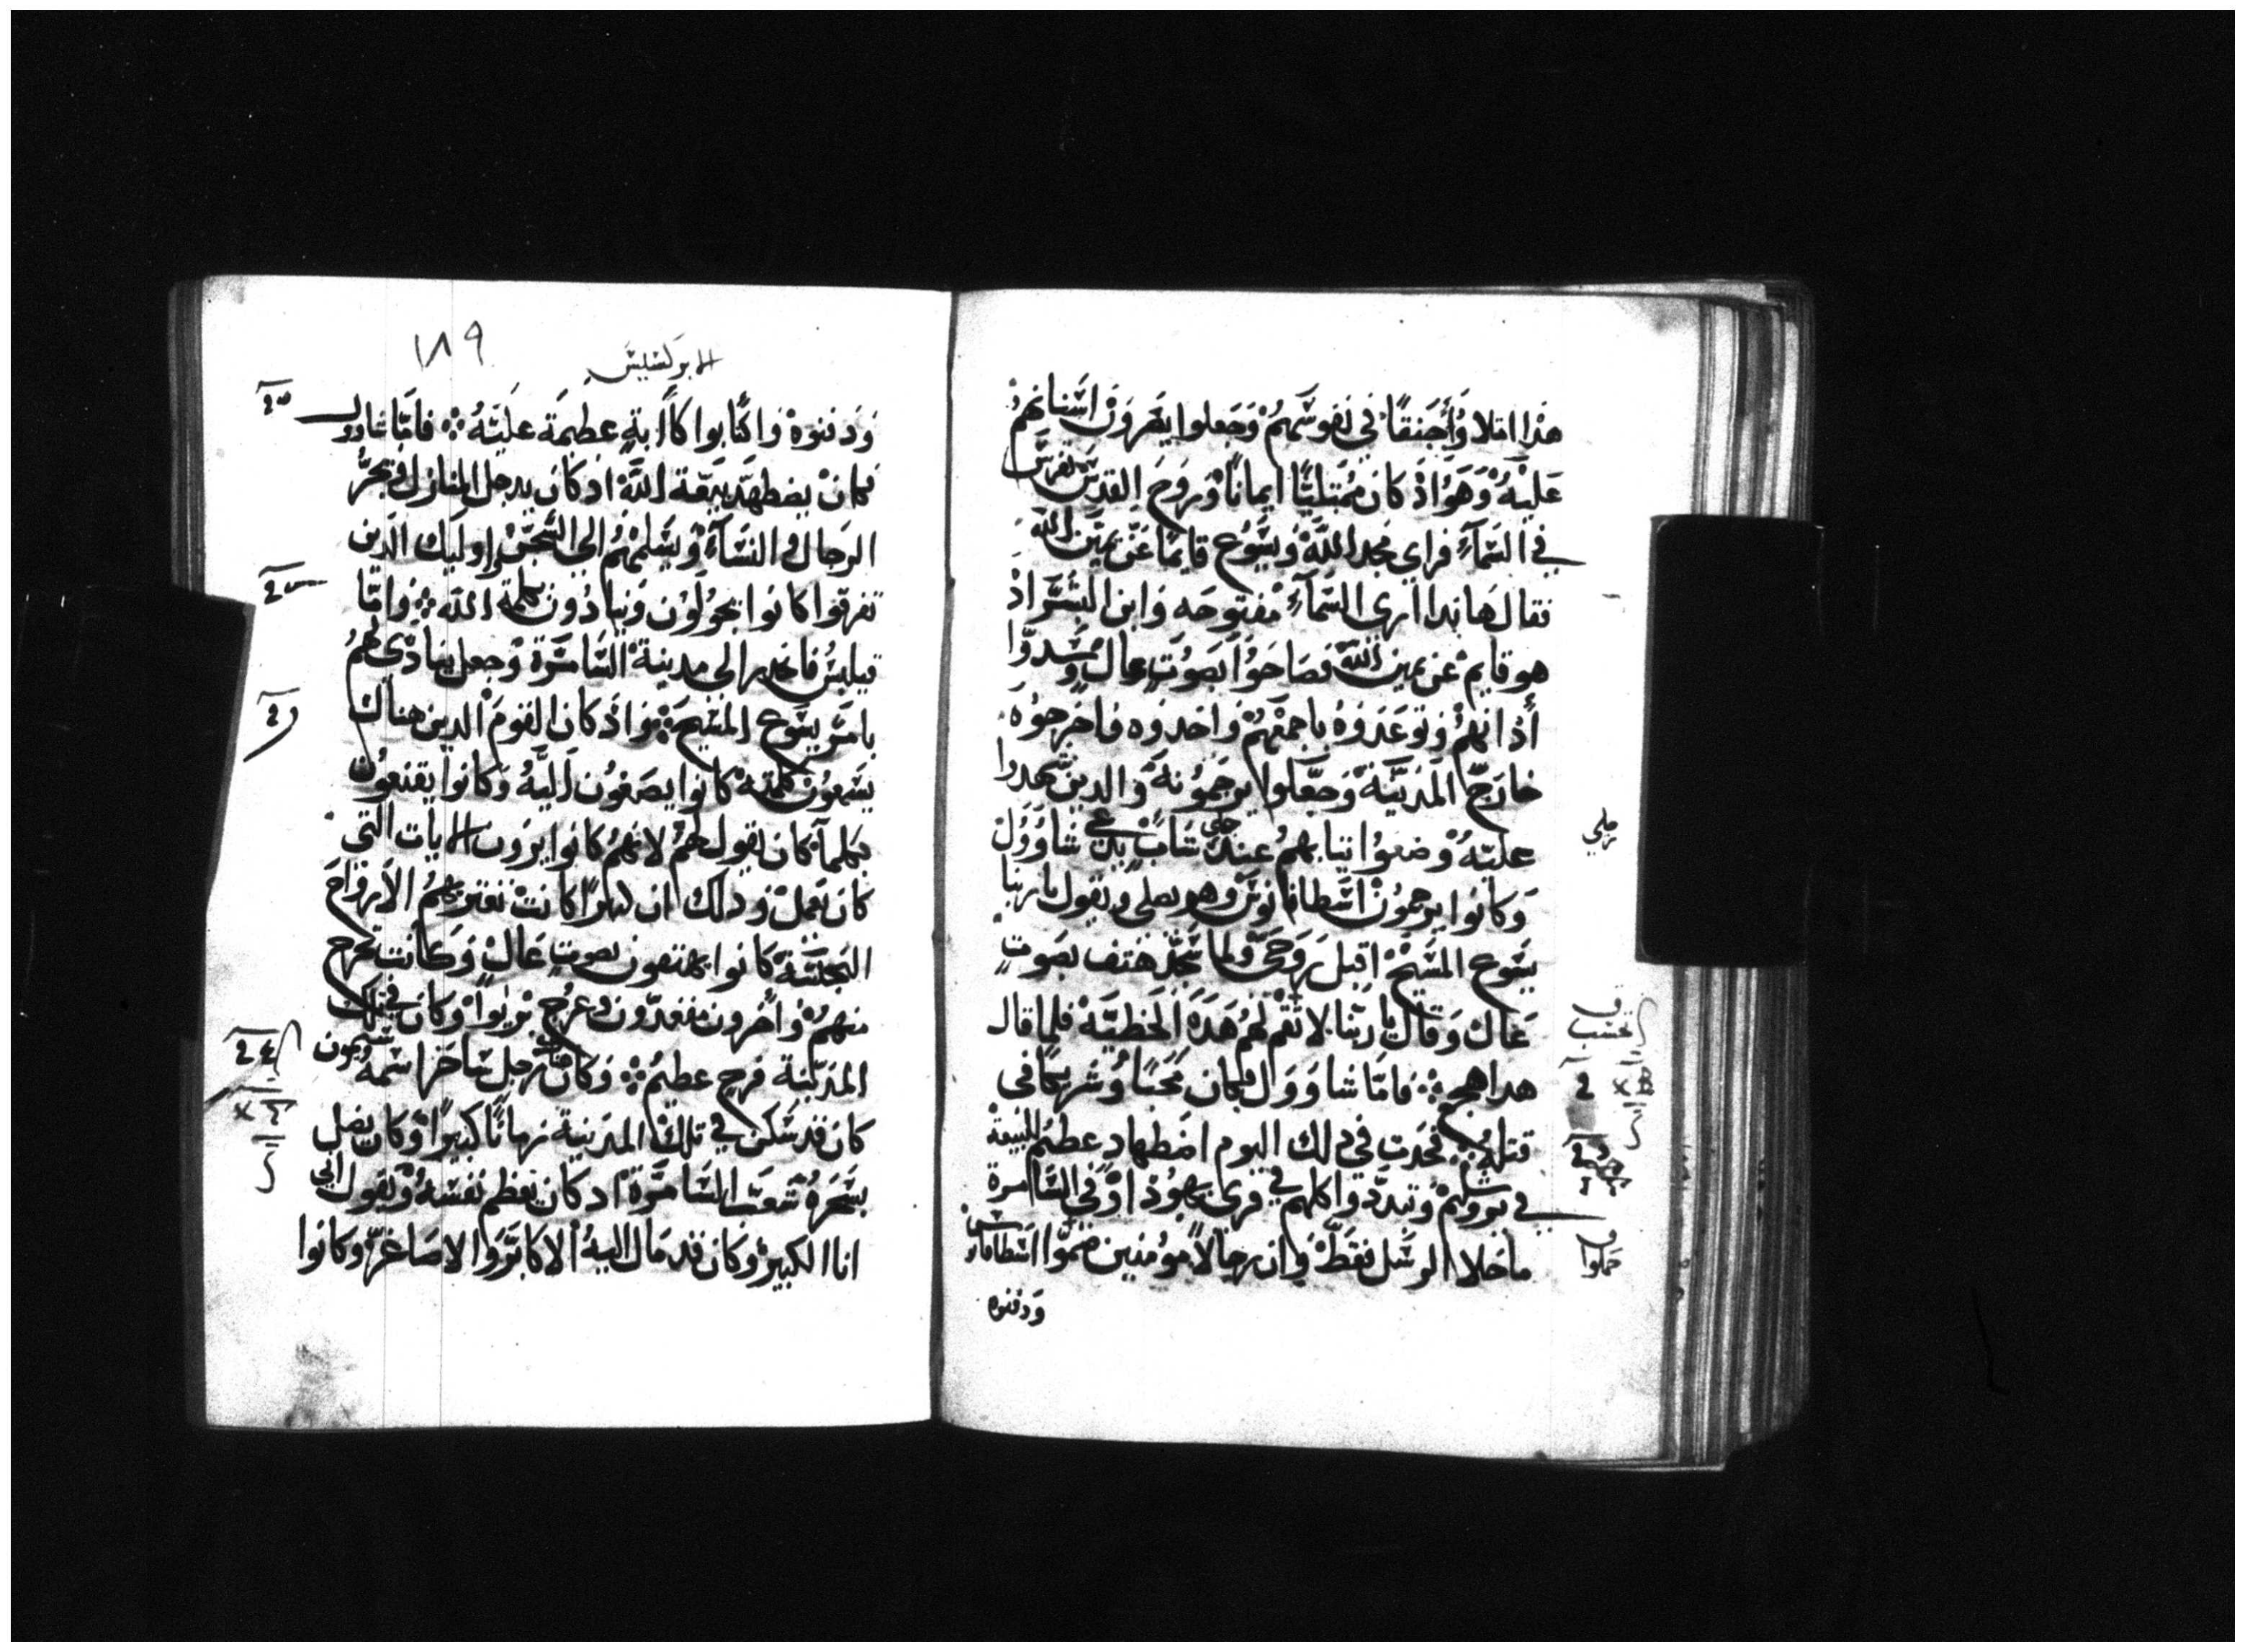 هذا امتلاوا حنقًا في نفوسهم وجعلوا يصرون اسنانهم
عليه وهو اذ كان ممتليًا ايمانًا وروح القدس تفرس
في السمآء فراي مجد الله ويسوع قايمًا عن يمين الله
فقال هاندا اري السمآء مفتوحه وابن البشر اذ
هو قايم عن يمين الله فصاحوا بصوتٍ عالٍ وسدوا
أذانهم وتوعدوه باجمعهم واخدوه فاخرجوه
خارج المدينة وجعلوا يرجمونه والدين شهدوا
عليه وضعوا تيابهم عند رجلي شابٍ يدعي شاوول
وكانوا يرجمون اسطافانوس وهو يصلي ويقول يا ربنا
يسوع المسيح اقبل روحي ولما سجد هتف بصوتٍ
عالٍ وقال يا ربنا لا تقم لهم هده الخطية فلما قال
هدا هجع ⁘ فامّا شاوول فكان محبًا وشريكًا في
قتله ⁘ فحدت في دلك اليوم اضطهاد عظيم للبيعة
في يروشليم وتبددوا كلهم في قري يهوذا وفي السامرة
ما خلا الرسل فقط وان رجالاً مومنين ضموا اسطافانس
ودفنوه
رجلي
تحسب
حملوا
الابركسيس
١٨٩
ودفنوه واكتابوا كآابةٍ عظيمة عليه ⁘ فامّا شاوول
فكان يضطهد بيعة الله اد كان يدخل المنازل ويجرّ
الرجال والنسآء ويسلمهم الي السجن واوليك الدين
تفرقوا كانوا يجولون وينادون بكلمة الله ⁘ وامّا
فيلبس فانحدر الي مدينة السامرة وجعل ينادي لهم
بامر يسوع المسيح ⁘ واذ كان القوم الدين هناك
يسمعون كلمته كانوا يصغون اليه وكانوا يقنعون
بكلما كان يقول لهم لانهم كانوا يرون الايات التي
كان يعمل ودلك ان كتيرًا كانت تعتريهم الارواح
النجسة كانوا يهتفون بصوتٍ عالٍ وكانت تخرج
منهم واخرون مقعدون وعرج بريوا وكان في تلك
المدينة فرح عظيم ⁘ وكان هناك رجل ساحر اسمه سيمون
كان قد سكن في تلك المدينة زمانًا كبيرًا وكان يضل
بسحره شعب السامرة اد كان يعظم نفسه ويقول اني
انا الكبير وكان قد مال اليه الاكابر والاصاغر وكانوا